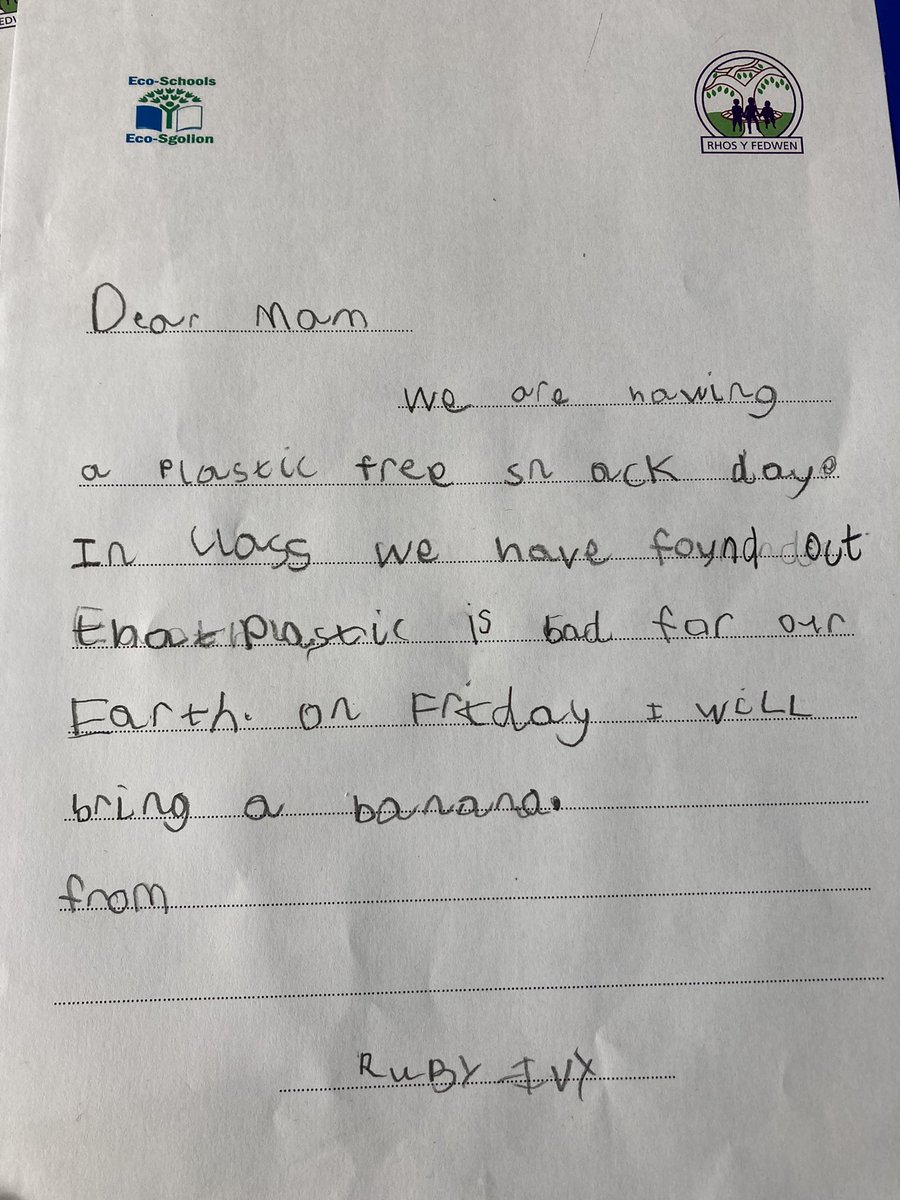 EDW
Eco-Schools
Eco-Sgolion
RHOS Y FEDWEN
Dear Mam
We are having
a plastic free sn ack day.
In class we have found out
that plastic is bad for our
Earth. on Friday I will
bring a banana.
from
RUBY IVY